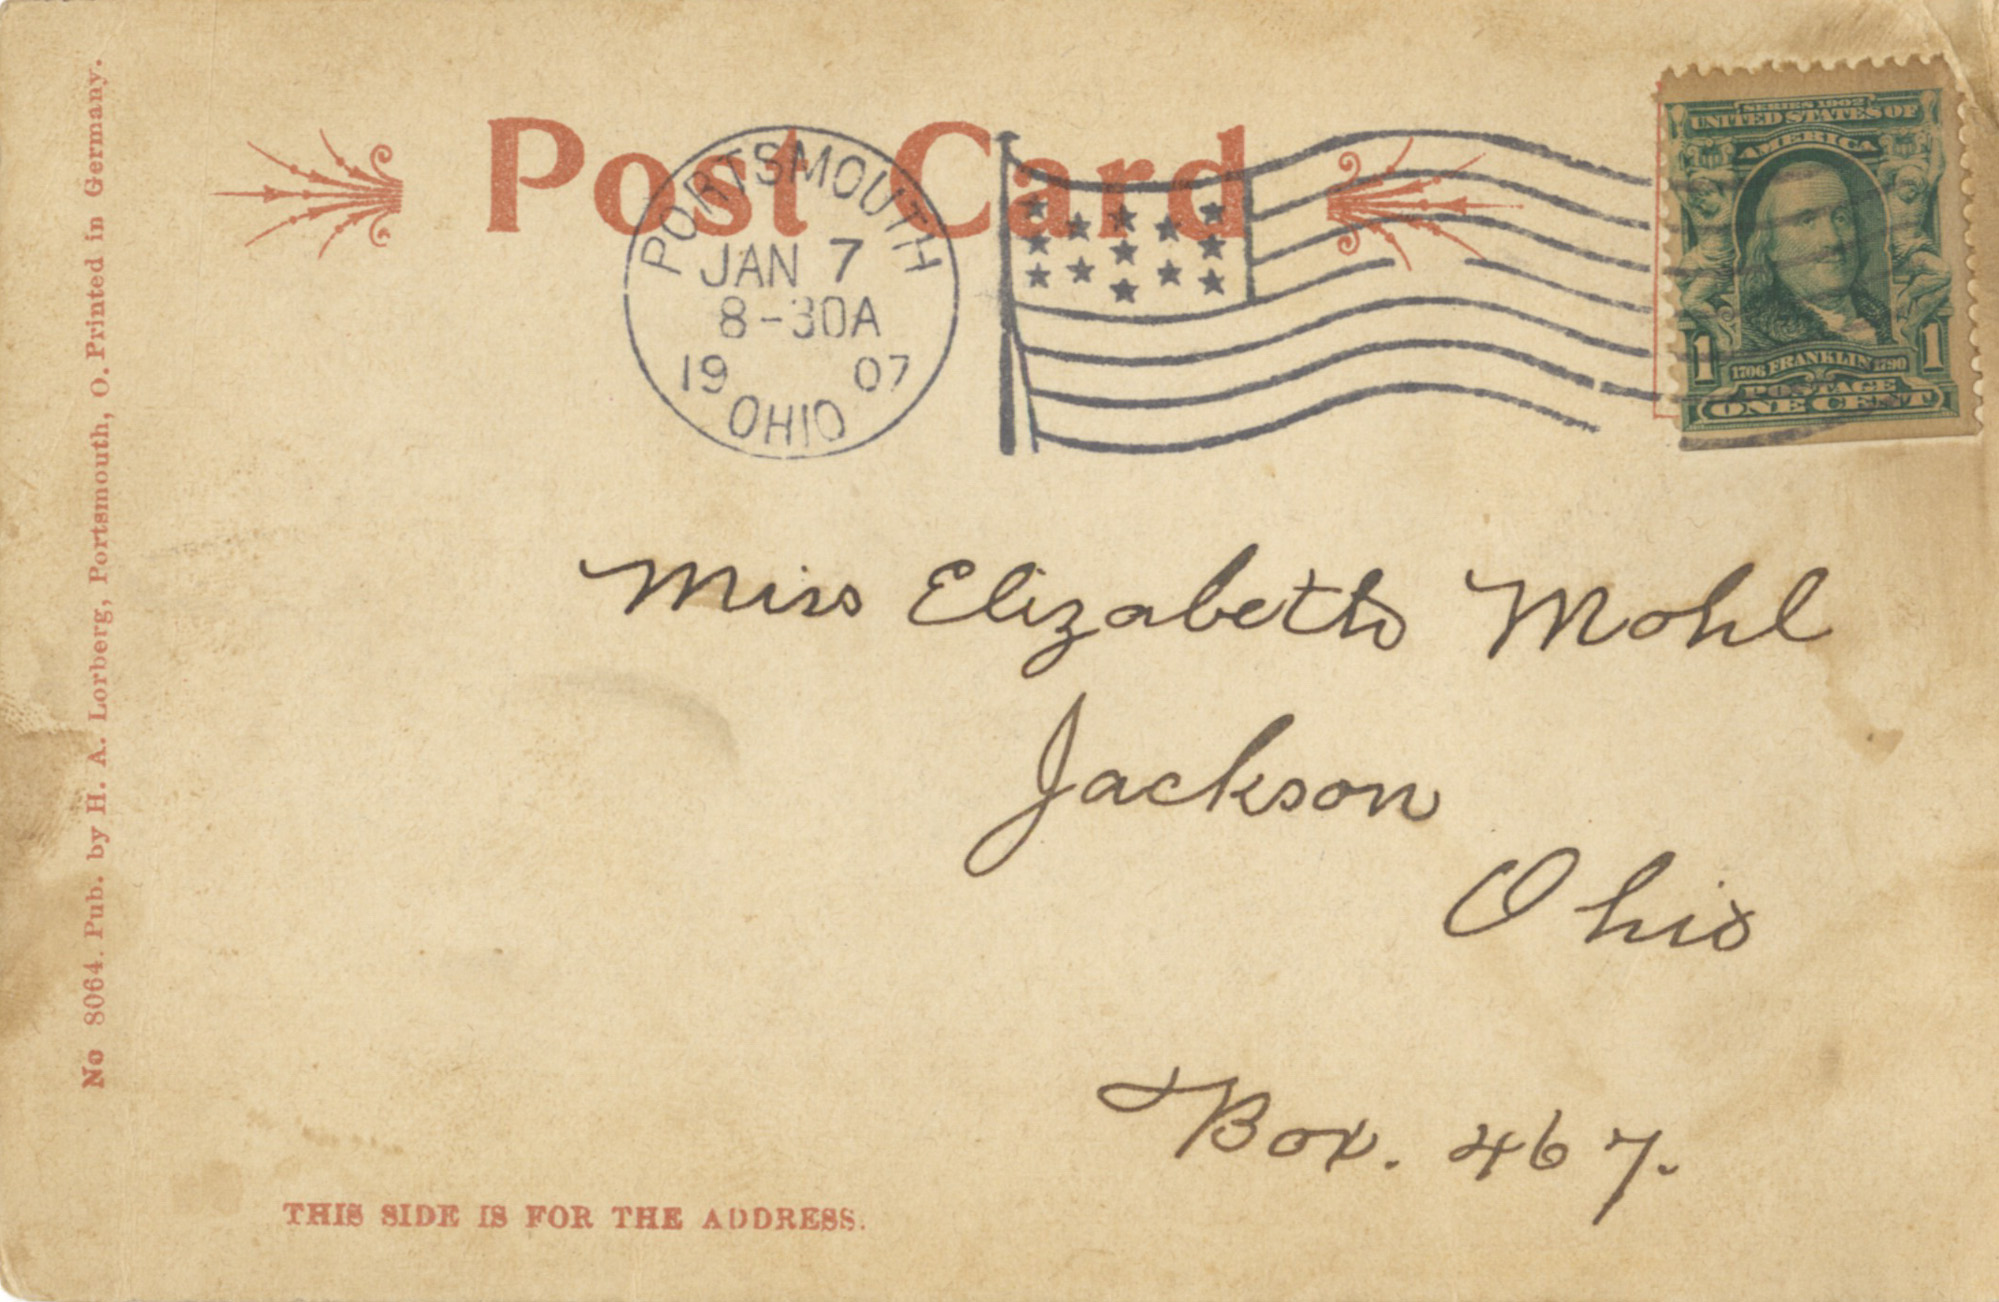 Post Card
PORTSMOUTH
JAN 7
8-30A
19 07
OHIO
SERIES 1902
UNITED STATES OF
AMERICA
1 1706 FRANKLIN 1790 1
POSTAGE
ONE CENT
No 8064. Pub. by H. A. Lorberg, Portsmouth, O. Printed in Germany.
Miss Elizabeth Mohl
Jackson
Ohio
Box. 467.
THIS SIDE IS FOR THE ADDRESS.